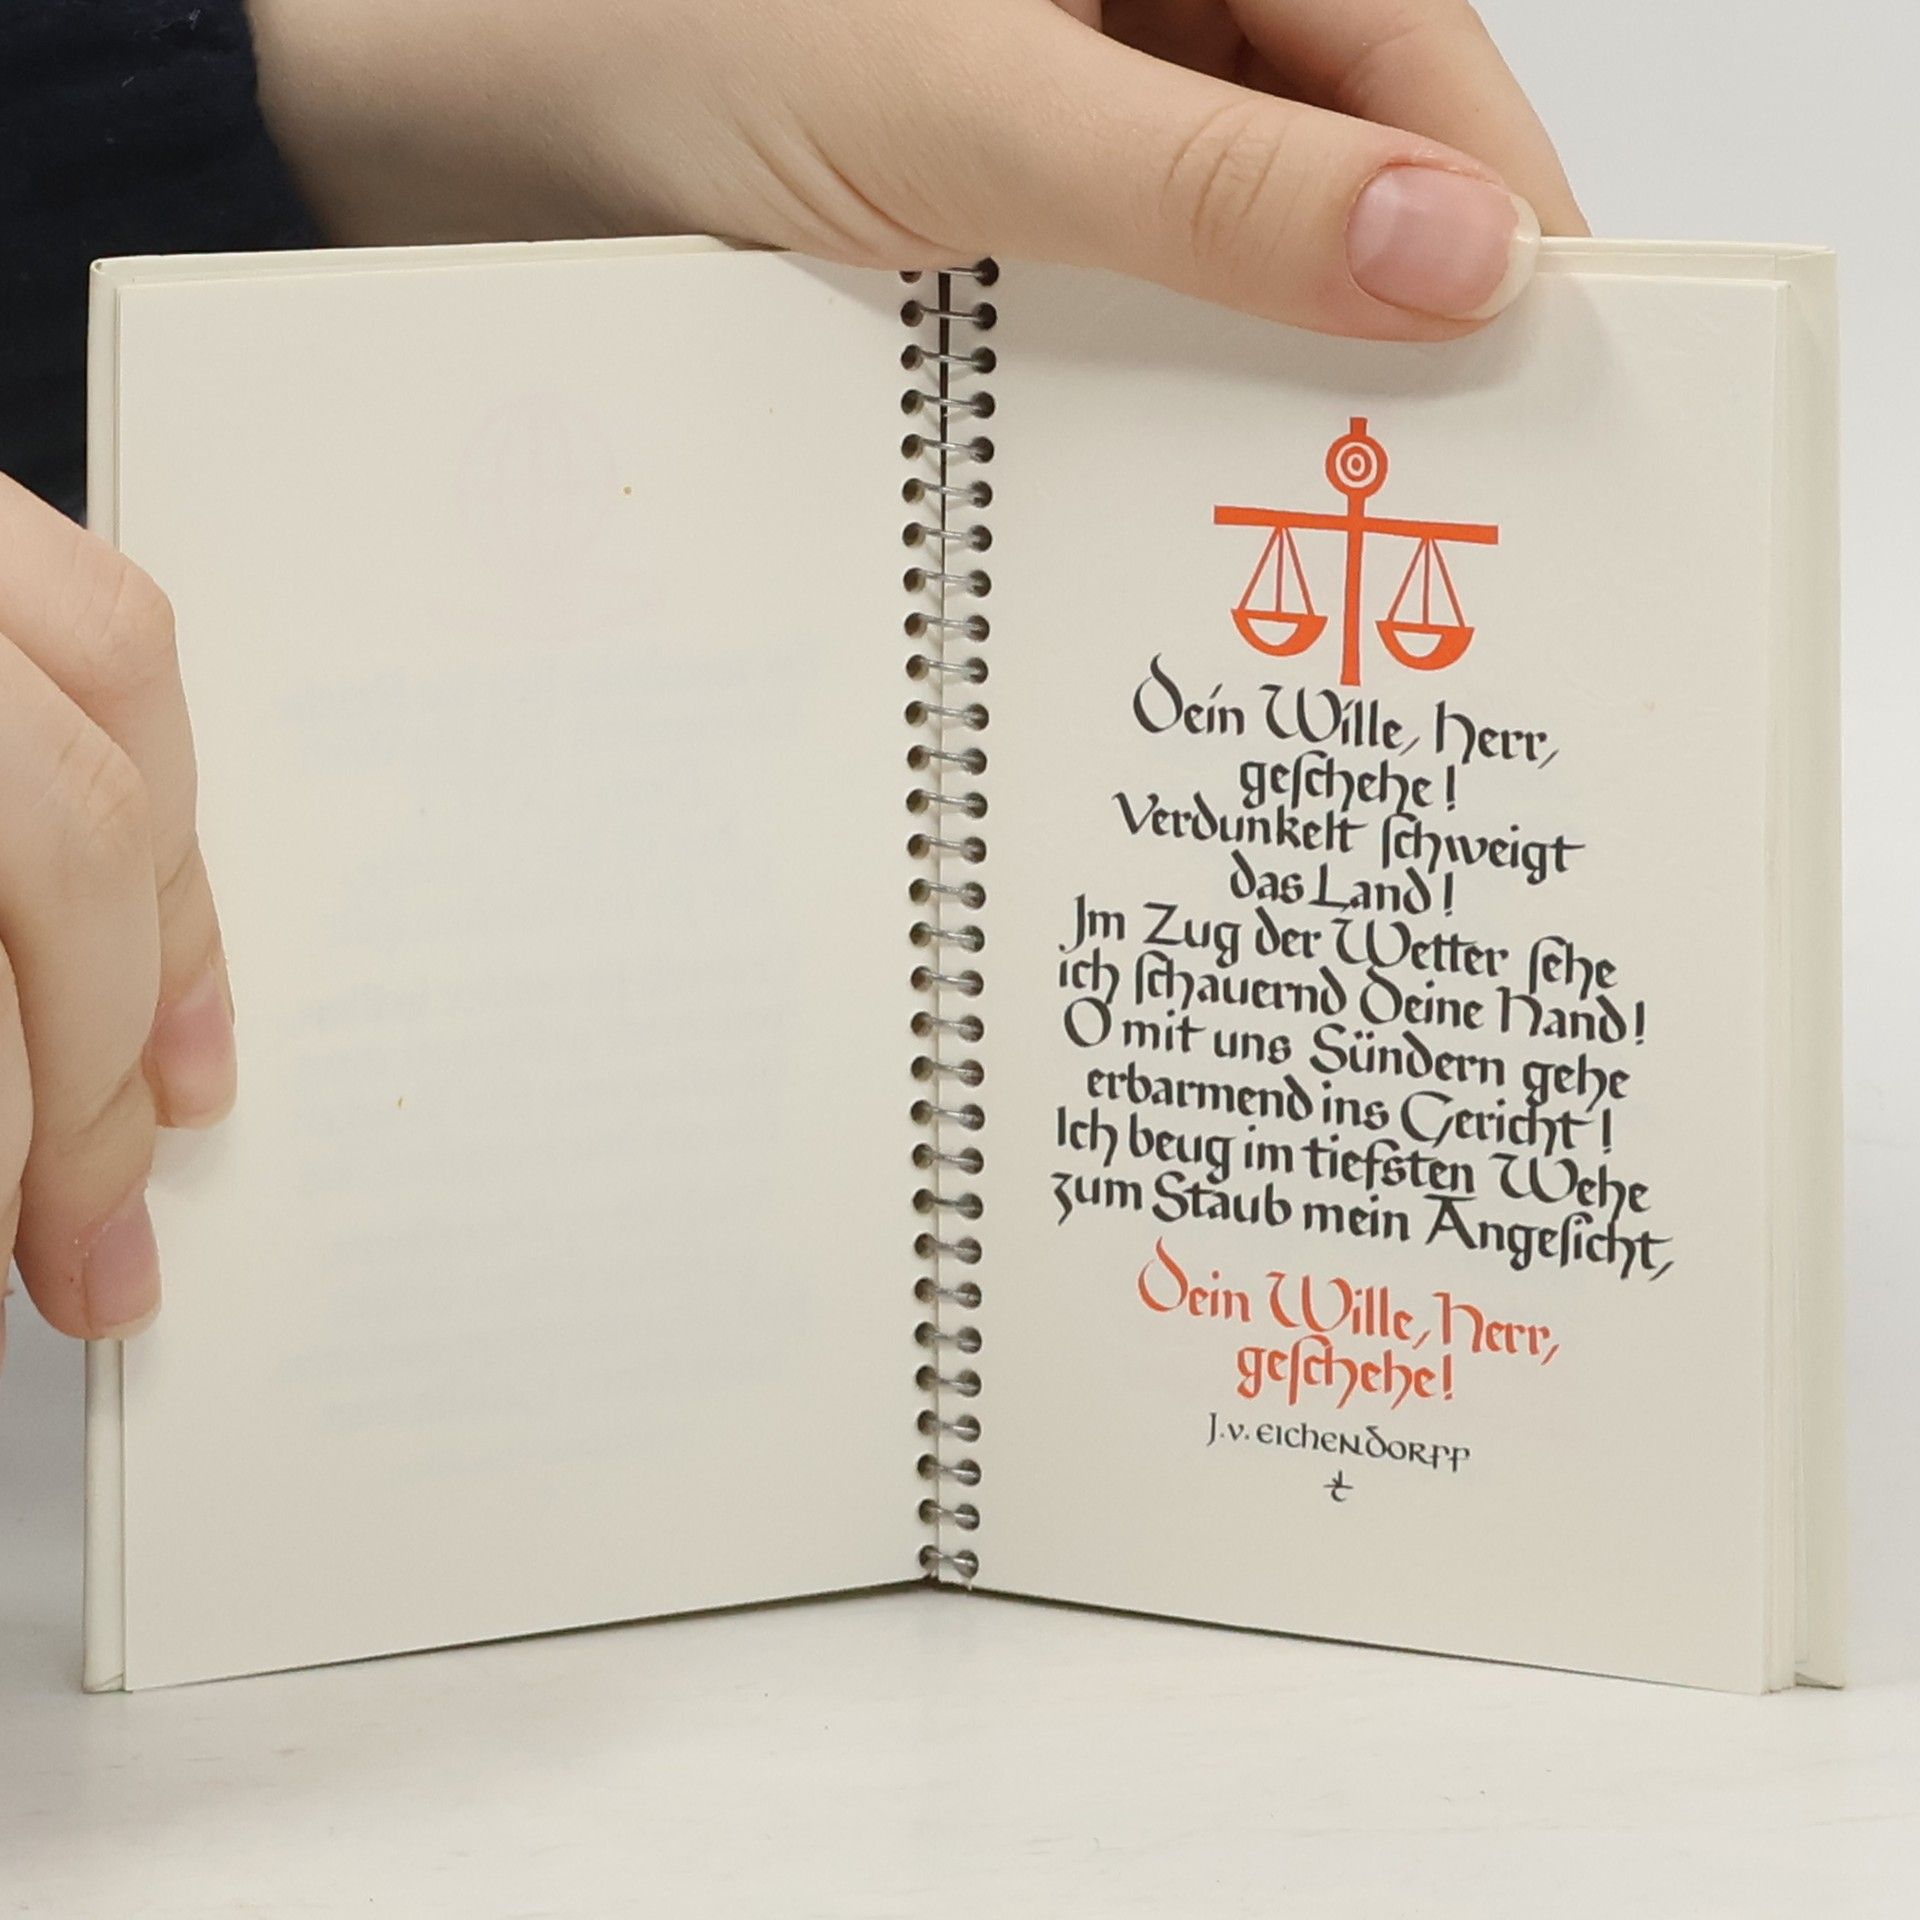 Dein Wille, Herr,
geſchehe!
Verdunkelt ſchweigt
das Land!
Im Zug der Wetter ſehe
ich ſchauernd Deine Hand!
O mit uns Sündern gehe
erbarmend ins Gericht!
Ich beug im tiefsten Wehe
zum Staub mein Angeſicht,
Dein Wille, Herr,
geſchehe!
J. v. EICHENDORFF